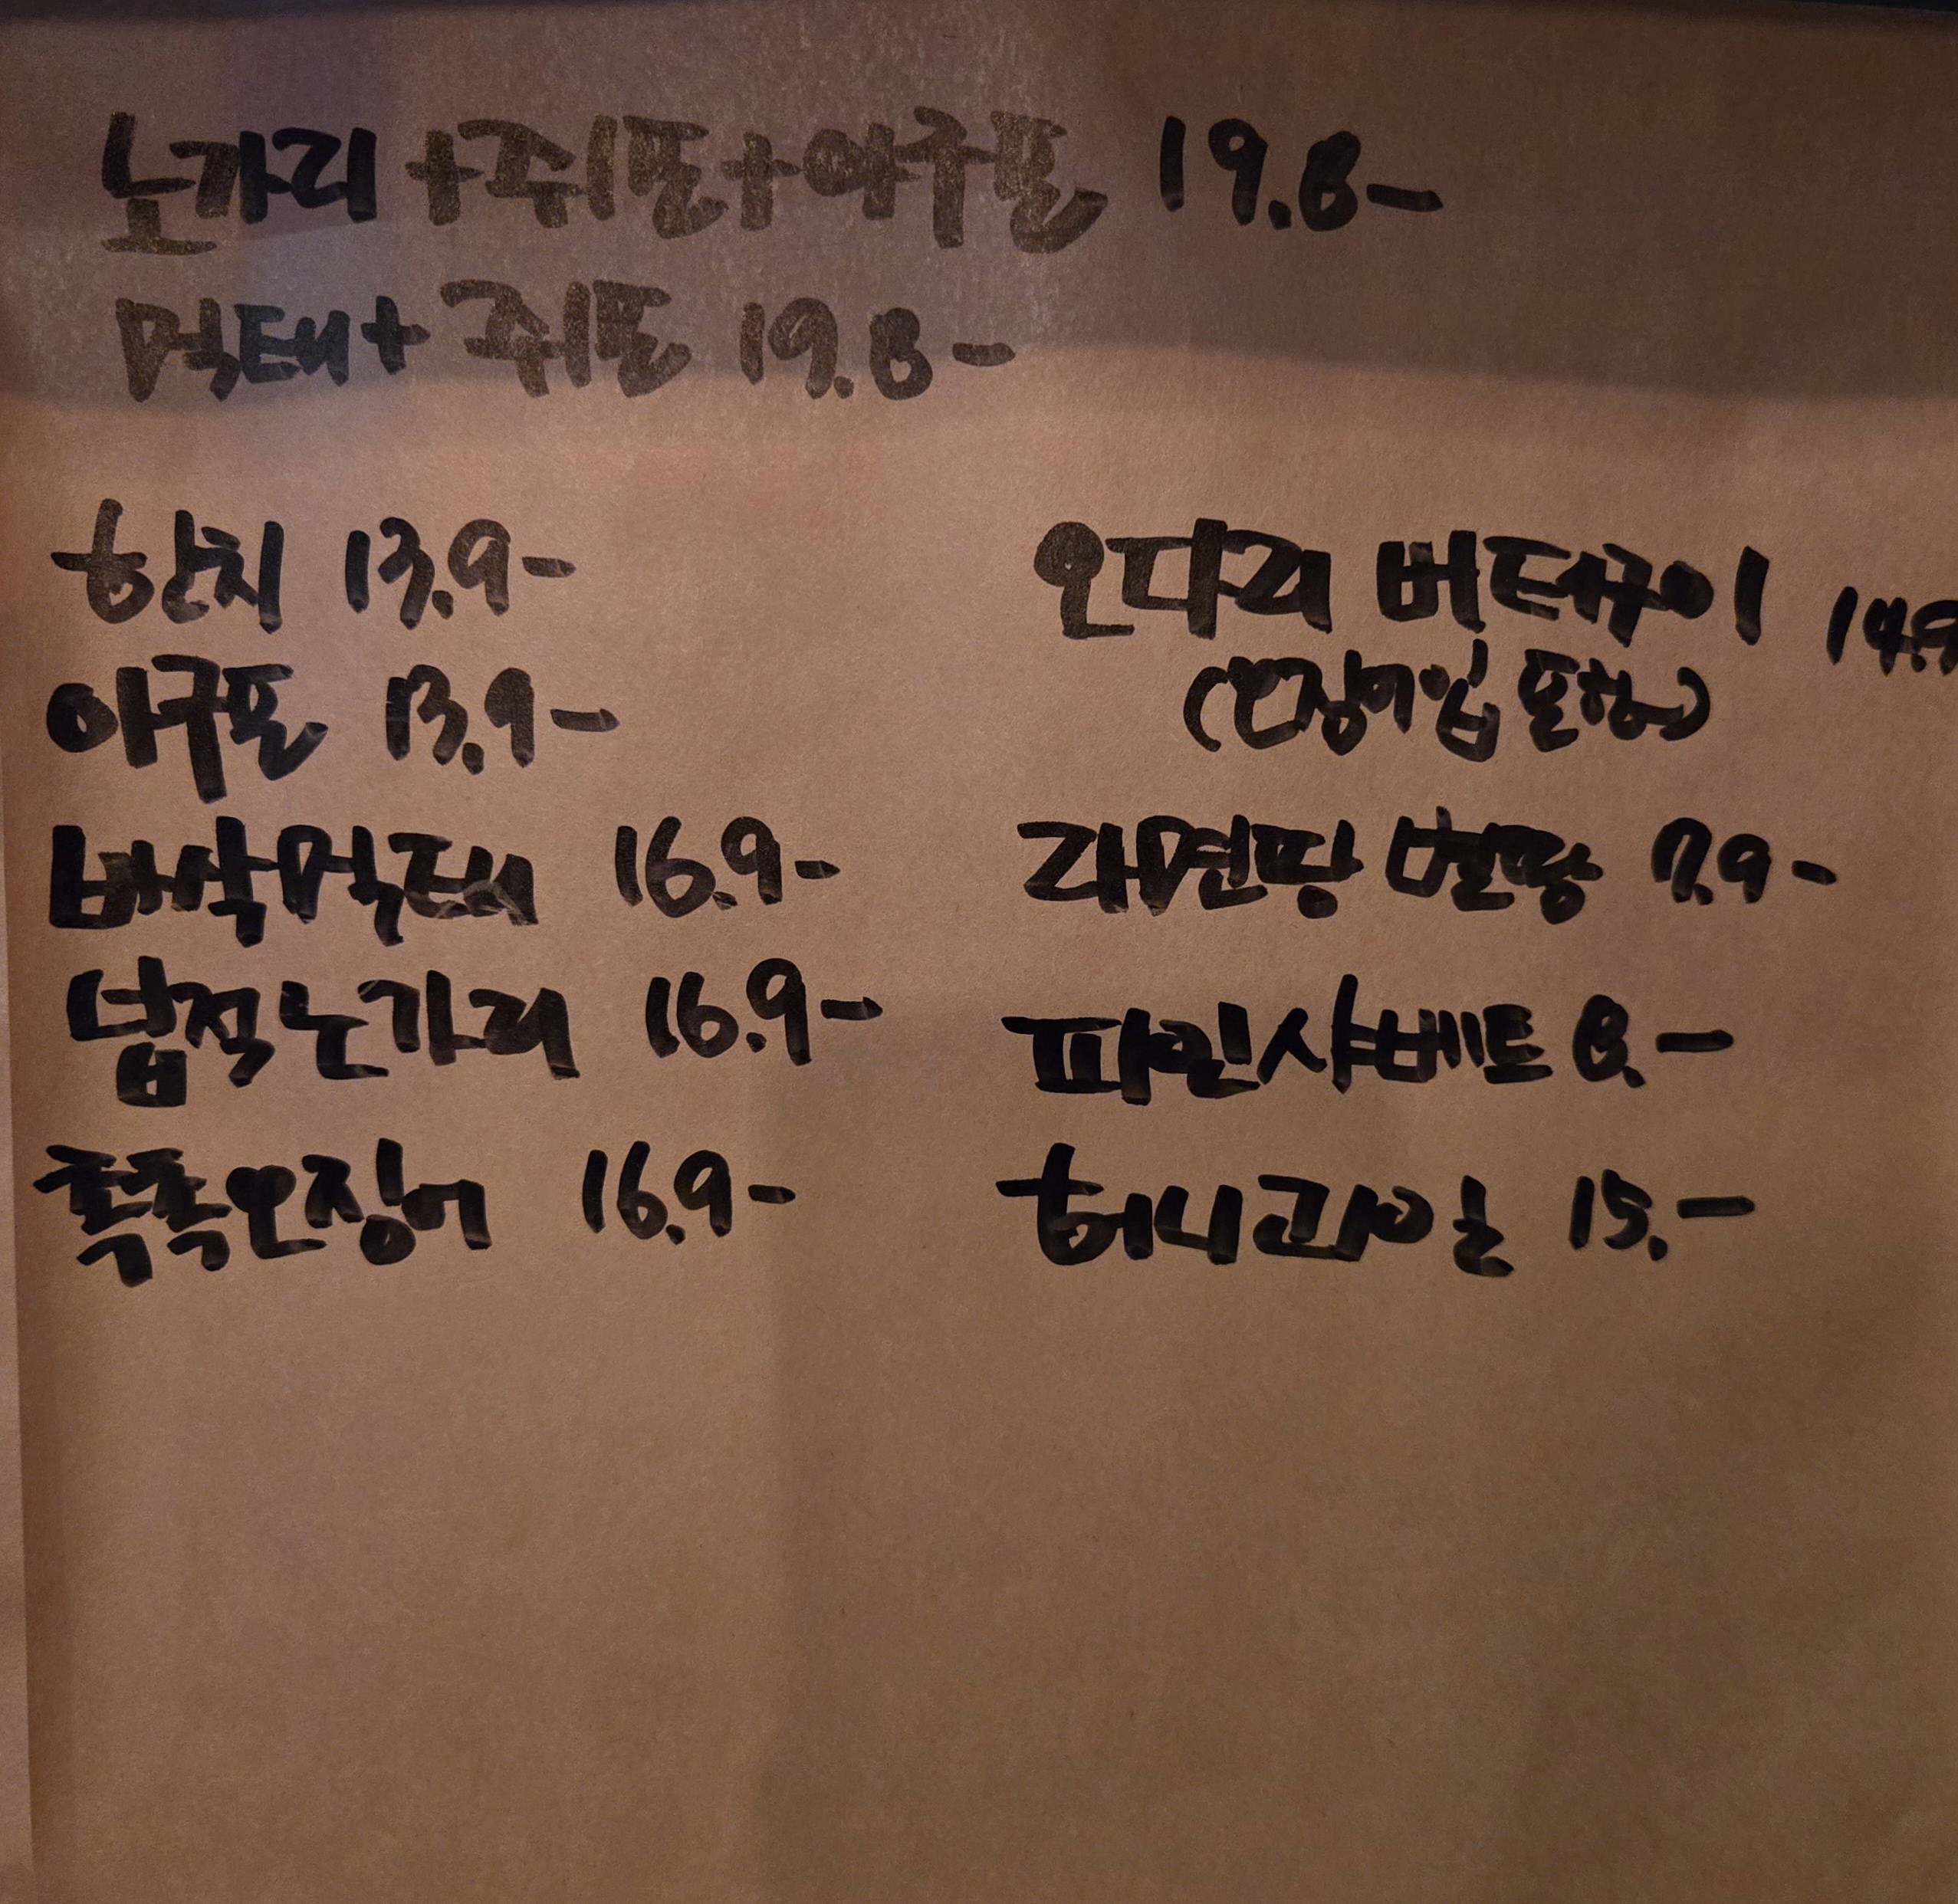 노가리+쥐포+아구포 19.8-
먹태+쥐포 19.8-
한치 13.9-
아구포 13.9-
바삭먹태 16.9-
넙적노가리 16.9-
촉촉오징어 16.9-
오다리 버터구이 14.9
(오징어입 포함)
라면땅 별땅 7.9-
파인샤베트 8.-
허니과일 15.-